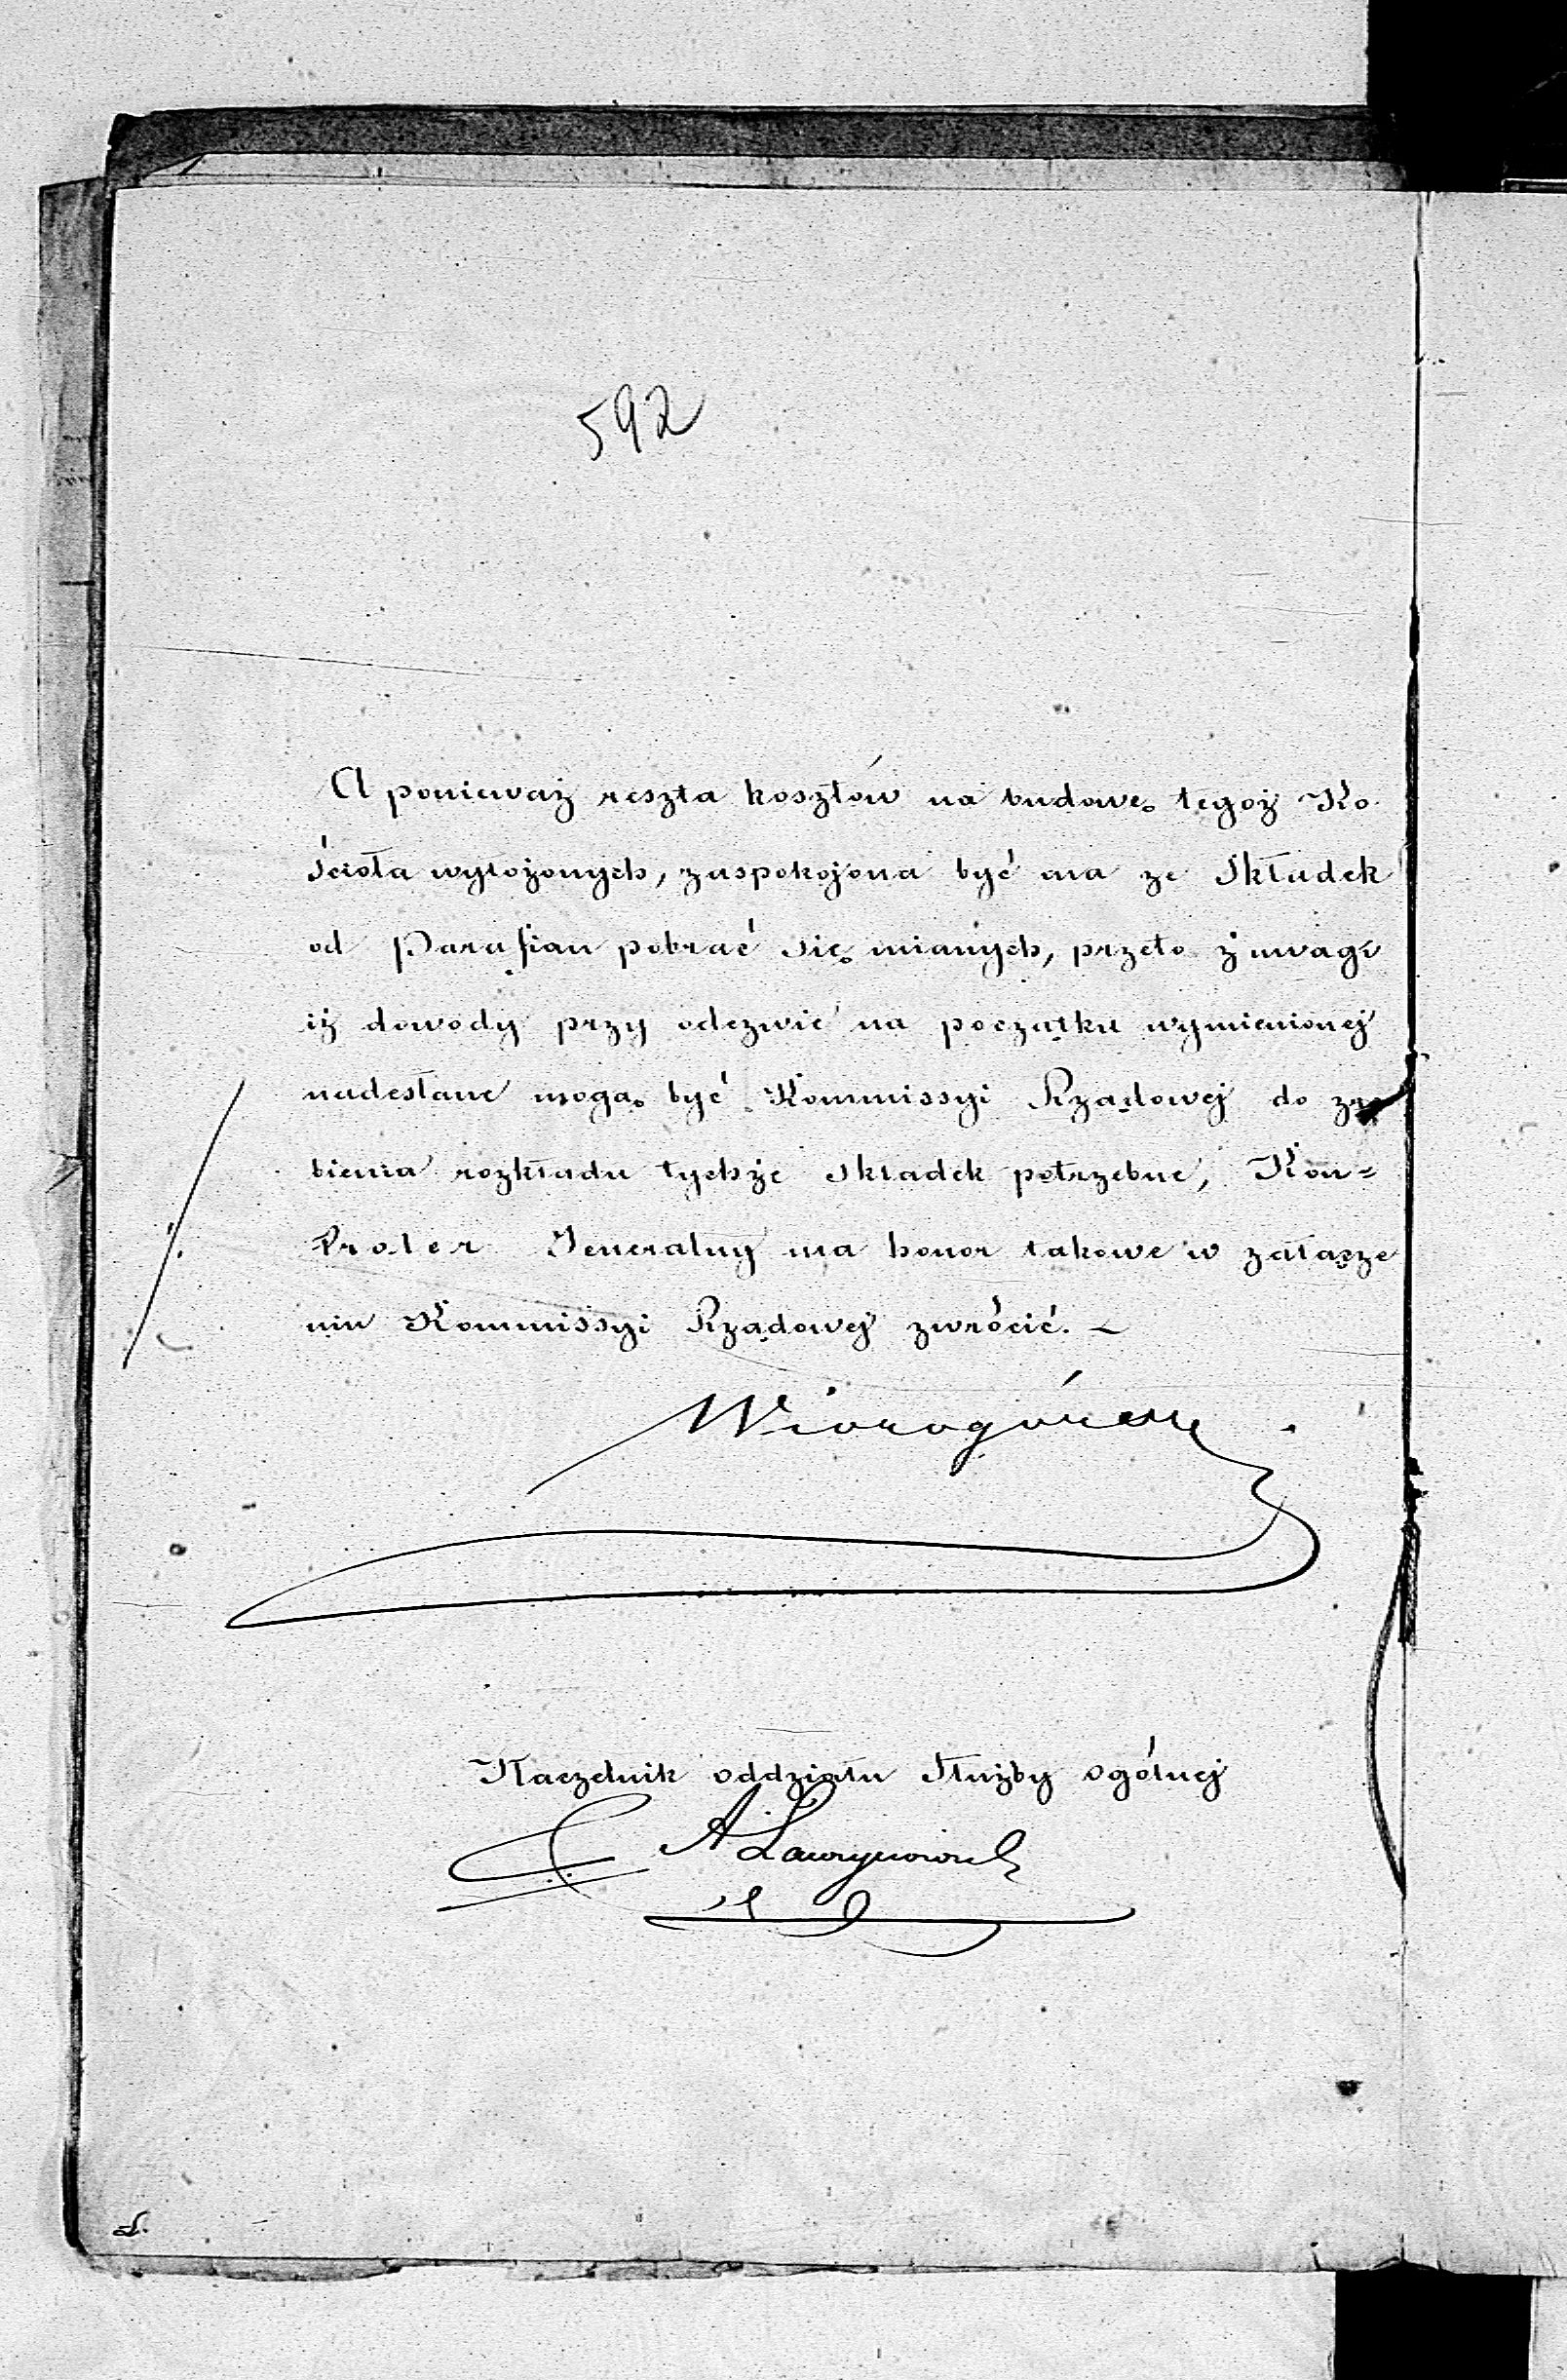 592
A ponieważ reszta kosztów na budowę tegoż Ko-
ścioła wyłożonych, zaspokojona być ma ze Składek
od Parafian pobrać się mianych, przeto z uwagi
iż dowody przy odezwie na początku wymienionej
nadesłane mogą być Kommissyi Rządowej do zro
bienia rozkładu tychże składek potrzebne, Kon=
troler Jeneralny ma honor takowe w załącze
niu Kommissyi Rządowej zwrócić. –
Naczelnik oddziału Służby ogólnej